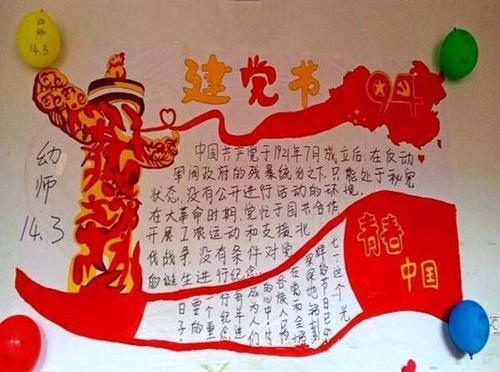 建党节
94
幼师
14.3
幼师
14.3
中国共产党于1921年7月成立后,在反动
军阀政府的残暴统治之下,只能处于秘密
状态,没有公开进行活动的环境.
在大革命时期,党忙于国共合作
开展工农运动和支援北
伐战争,没有条件对党
的诞生进行纪念
七一这个光
辉的节日已
深深地铭刻
青春
中国